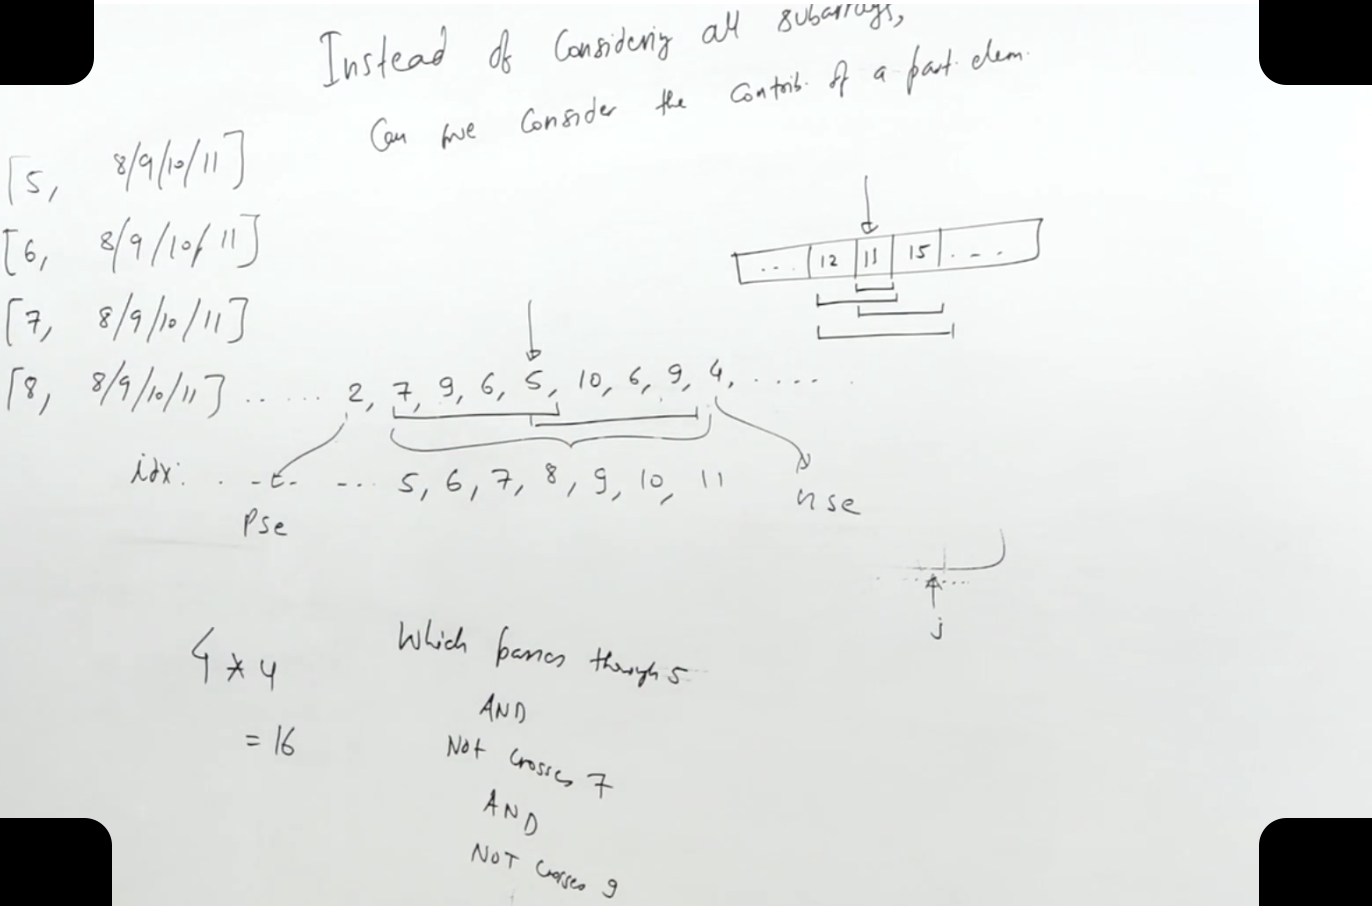 Instead of Considering all subarrays,
Can we Consider the Contrib. of a part. elem.
[5, 8/9/10/11]
[6, 8/9/10/11]
[7, 8/9/10/11]
[8, 8/9/10/11]
... 12 11 15 ...
..... 2, 7, 9, 6, 5, 10, 6, 9, 4, .....
idx: ... 5, 6, 7, 8, 9, 10, 11
Pse
nse
j
4 * 4
= 16
Which passes through 5
AND
Not crosses 7
AND
NOT crosses 9